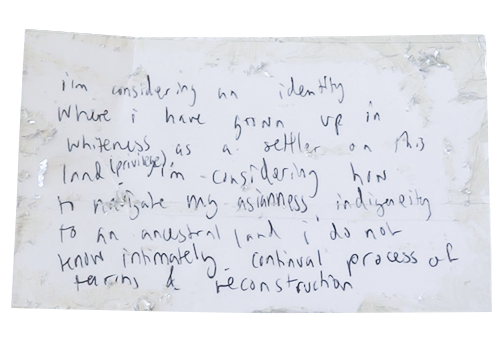 i'm considering an identity
where i have grown up in
whiteness as a settler on this
land (privilege). i'm considering how
to navigate my asianness indigeneity
to an ancestral land i do not
know intimately. continual process of
tearing & reconstruction